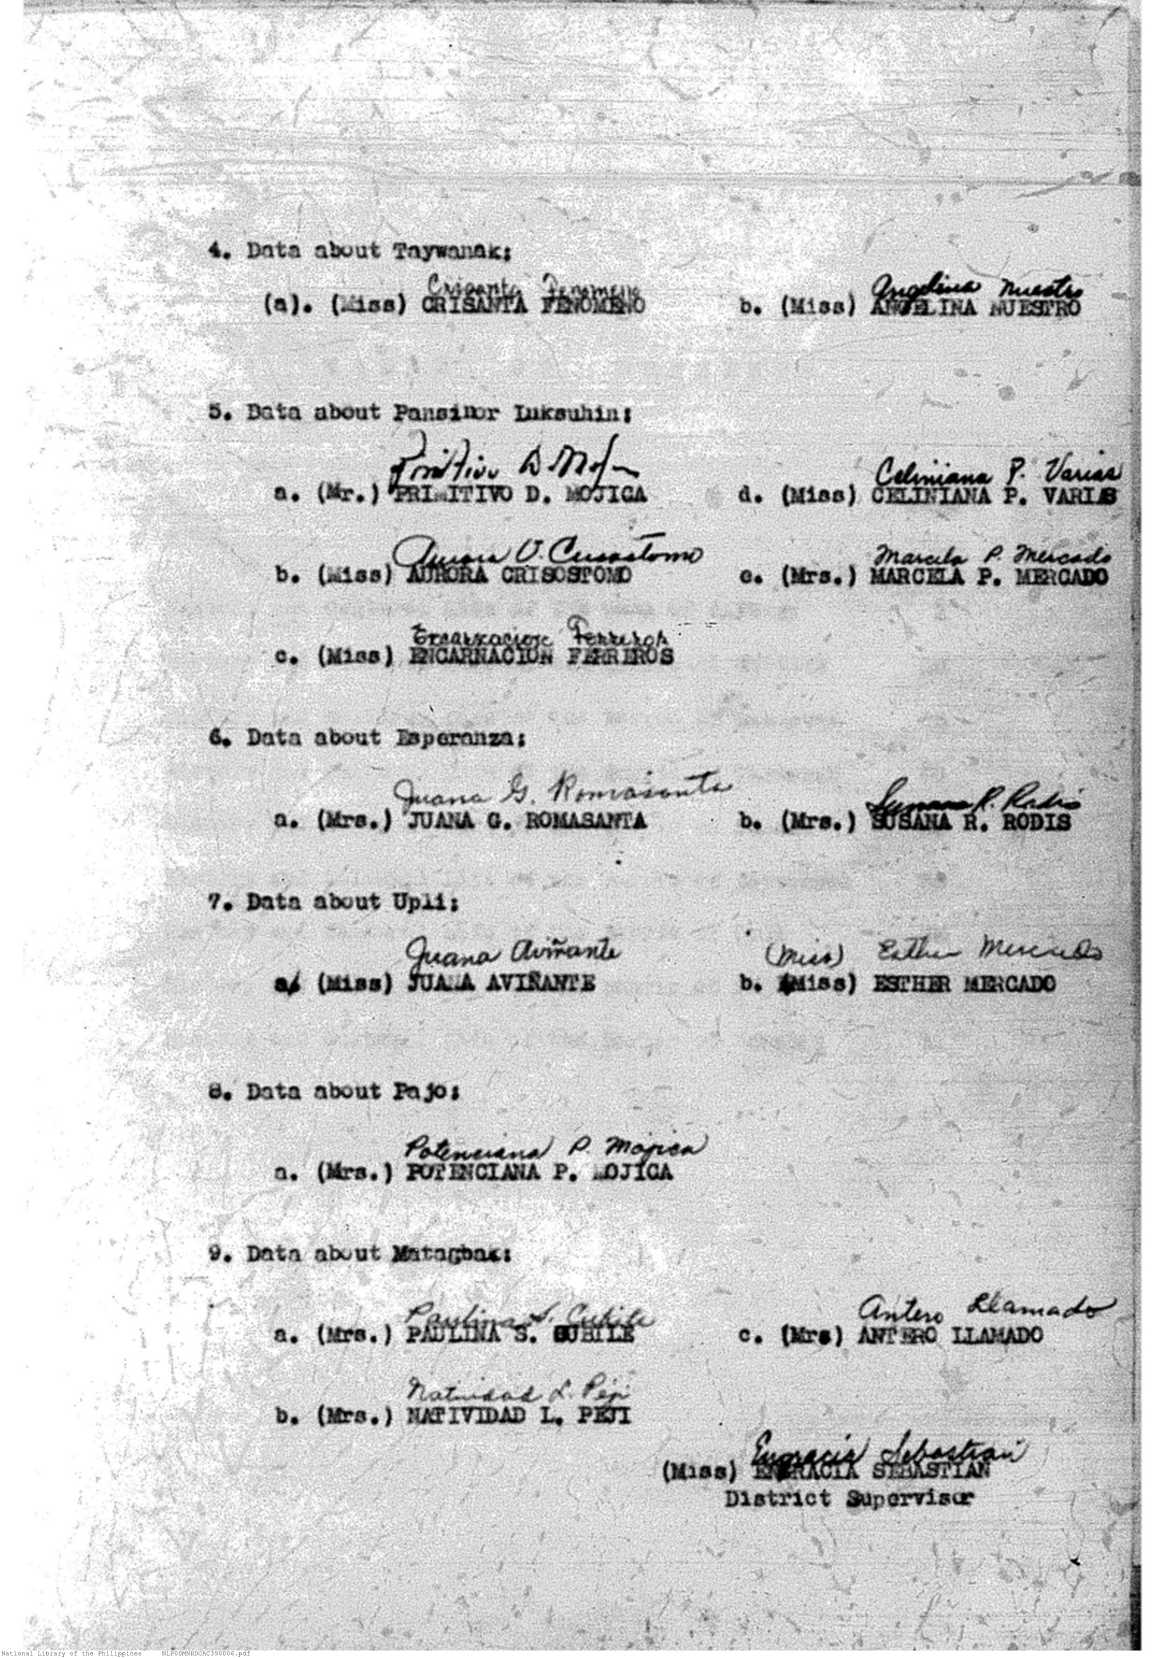 4. Data about Taywanak:
Crisanta Fenomeno Angelina Nuestro
(a). (Miss) CRISANTA FENOMENO b. (Miss) ANGELINA NUESTRO
5. Data about Pansinor Luksuhin:
Primitivo D. Mojica Celiniana P. Varias
a. (Mr.) PRIMITIVO D. MOJICA d. (Miss) CELINIANA P. VARIAS
Aurora V. Crisostomo Marcela P. Mercado
b. (Miss) AURORA CRISOSTOMO e. (Mrs.) MARCELA P. MERCADO
Encarnacion Ferreros
c. (Miss) ENCARNACION FERREROS
6. Data about Esperanza:
Juana G. Romasanta Susana R. Rodis
a. (Mrs.) JUANA G. ROMASANTA b. (Mrs.) SUSANA R. RODIS
7. Data about Upli:
Juana Aviñante (Miss) Esther Mercado
a. (Miss) JUANA AVIÑANTE b. (Miss) ESTHER MERCADO
8. Data about Pajo:
Potenciana P. Mojica
a. (Mrs.) POTENCIANA P. MOJICA
9. Data about Matagbak:
Paulina S. Cubile Antero Llamado
a. (Mrs.) PAULINA S. CUBILE c. (Mrs) ANTERO LLAMADO
Natividad L. Peji
b. (Mrs.) NATIVIDAD L. PEJI
Engracia Sebastian
(Miss) ENGRACIA SEBASTIAN
District Supervisor
National Library of the Philippines NLPOOMNRDOAC390006.pdf